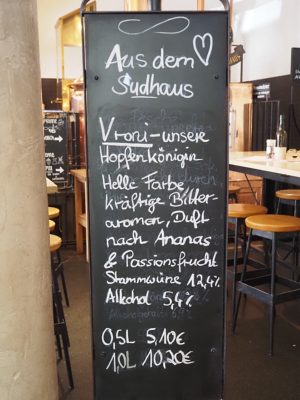 Aus dem
Sudhaus
Vroni - unsere
Hopfenkönigin
Helle Farbe
kräftige Bitter-
aromen, Duft
nach Ananas
& Passionsfrucht
Stammwürze 12,4%
Alkohol 5,4%
0,5L 5,10€
1,0L 10,20€